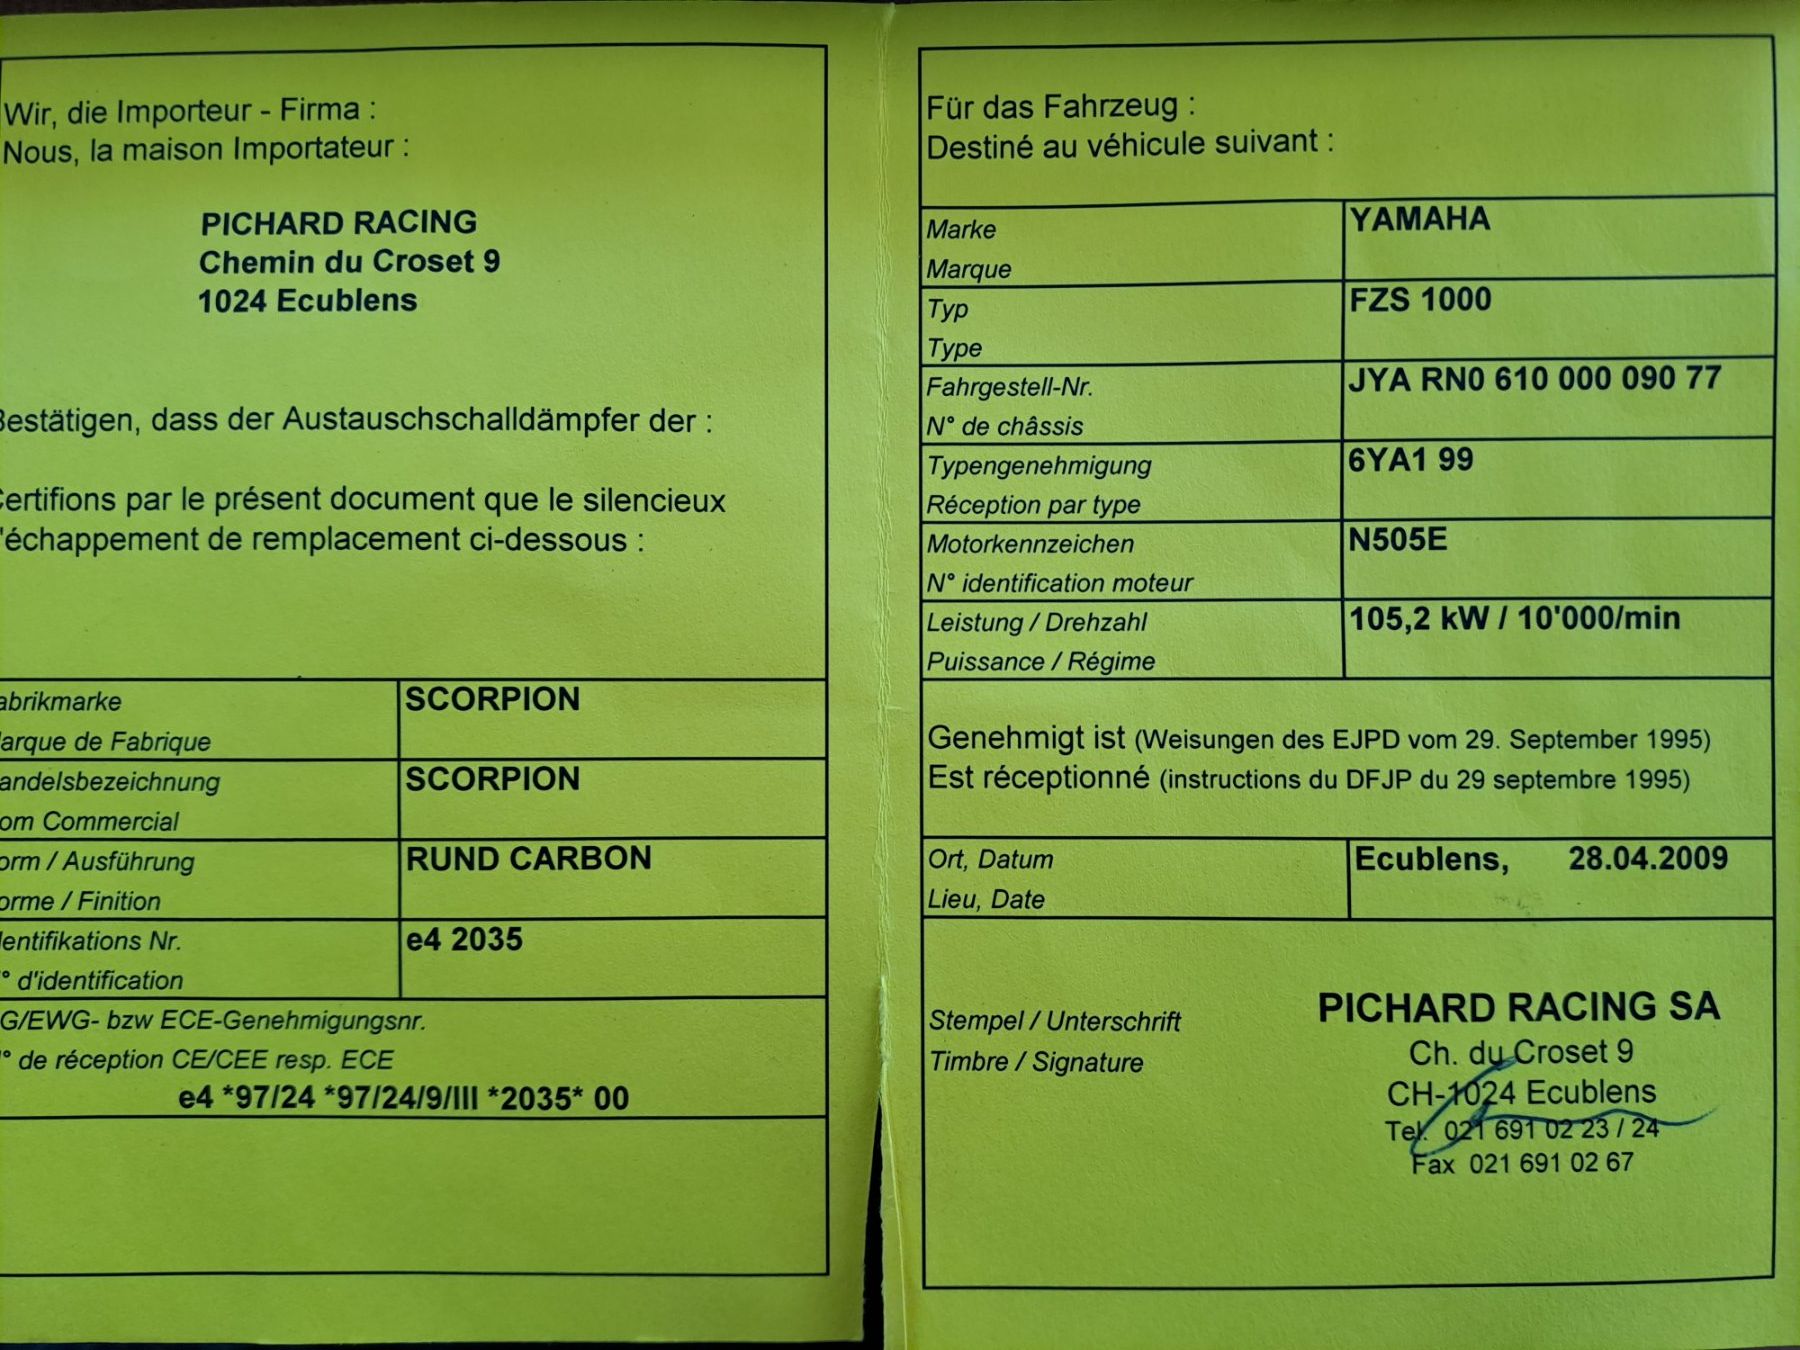 Wir, die Importeur - Firma :
Nous, la maison Importateur :
PICHARD RACING
Chemin du Croset 9
1024 Ecublens
Bestätigen, dass der Austauschschalldämpfer der :
Certifions par le présent document que le silencieux
'échappement de remplacement ci-dessous :
abrikmarke
arque de Fabrique
SCORPION
andelsbezeichnung
om Commercial
SCORPION
orm / Ausführung
orme / Finition
RUND CARBON
dentifikations Nr.
° d'identification
e4 2035
G/EWG- bzw ECE-Genehmigungsnr.
° de réception CE/CEE resp. ECE
e4 *97/24 *97/24/9/III *2035* 00
Für das Fahrzeug :
Destiné au véhicule suivant :
Marke
Marque
YAMAHA
Typ
Type
FZS 1000
Fahrgestell-Nr.
N° de châssis
JYA RN0 610 000 090 77
Typengenehmigung
Réception par type
6YA1 99
Motorkennzeichen
N° identification moteur
N505E
Leistung / Drehzahl
Puissance / Régime
105,2 kW / 10'000/min
Genehmigt ist (Weisungen des EJPD vom 29. September 1995)
Est réceptionné (instructions du DFJP du 29 septembre 1995)
Ort, Datum
Lieu, Date
Ecublens, 28.04.2009
Stempel / Unterschrift
Timbre / Signature
PICHARD RACING SA
Ch. du Croset 9
CH-1024 Ecublens
Tel. 021 691 02 23 / 24
Fax 021 691 02 67